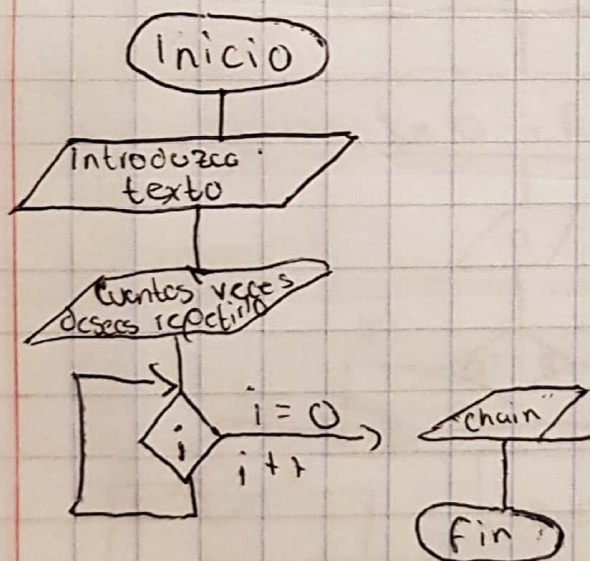 Inicio
Introduzca
texto
Cuantas veces
deseas repetirlo
i
i = 0
i++
"chain"
Fin